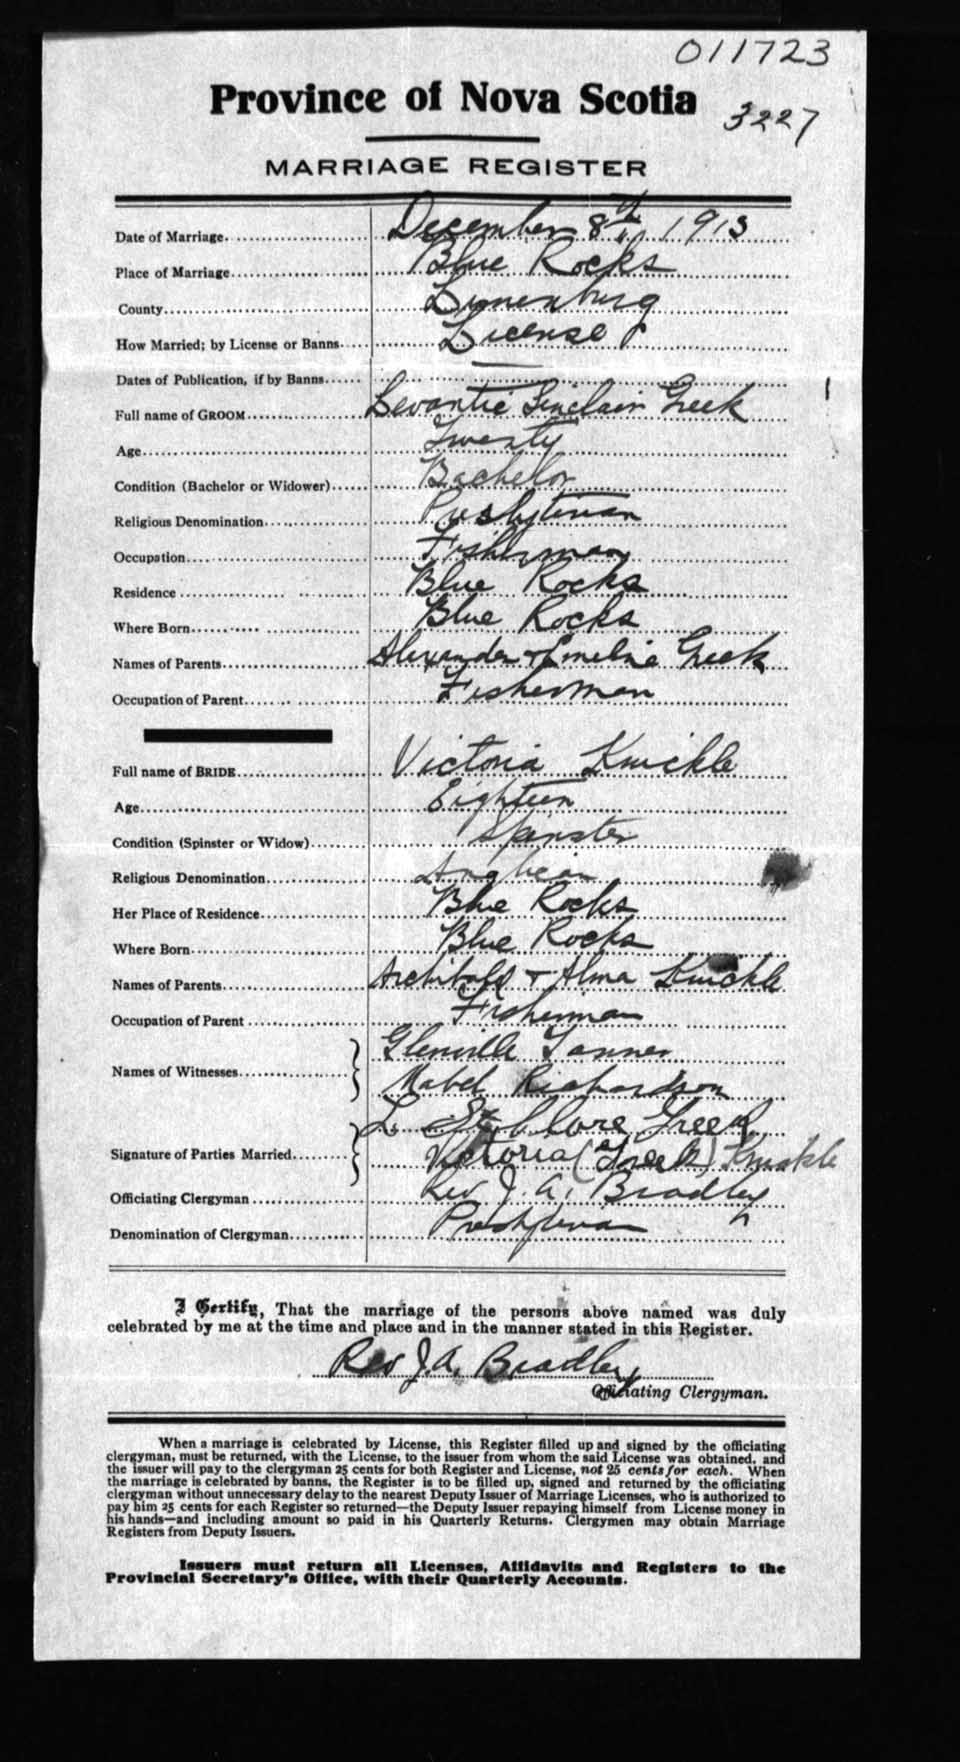 011723
Province of Nova Scotia
3227
MARRIAGE REGISTER
Date of Marriage December 8th 1913
Place of Marriage Blue Rocks
County Lunenburg
How Married; by License or Banns License
Dates of Publication, if by Banns —
Full name of GROOM Levantie Sinclair Greek
Age Twenty
Condition (Bachelor or Widower) Bachelor
Religious Denomination Presbyterian
Occupation Fisherman
Residence Blue Rocks
Where Born Blue Rocks
Names of Parents Alexander + Emeline Greek
Occupation of Parent Fisherman
Full name of BRIDE Victoria Knickle
Age Eighteen
Condition (Spinster or Widow) Spinster
Religious Denomination Anglican
Her Place of Residence Blue Rocks
Where Born Blue Rocks
Names of Parents Archibald + Alma Knickle
Occupation of Parent Fisherman
Names of Witnesses Glenville Tanner
Mabel Richardson
Signature of Parties Married L. Greek
Victoria (Greek) Knickle
Officiating Clergyman Rev J. A. Bradley
Denomination of Clergyman Presbyterian
I Certify, That the marriage of the persons above named was duly
celebrated by me at the time and place and in the manner stated in this Register.
Rev J. A. Bradley
Officiating Clergyman.
When a marriage is celebrated by License, this Register filled up and signed by the officiating
clergyman, must be returned, with the License, to the issuer from whom the said License was obtained, and
the issuer will pay to the clergyman 25 cents for both Register and License, not 25 cents for each. When
the marriage is celebrated by banns, the Register is to be filled up, signed and returned by the officiating
clergyman without unnecessary delay to the nearest Deputy Issuer of Marriage Licenses, who is authorized to
pay him 25 cents for each Register so returned—the Deputy Issuer repaying himself from License money in
his hands—and including amount so paid in his Quarterly Returns. Clergymen may obtain Marriage
Registers from Deputy Issuers.
Issuers must return all Licenses, Affidavits and Registers to the
Provincial Secretary's Office, with their Quarterly Accounts.